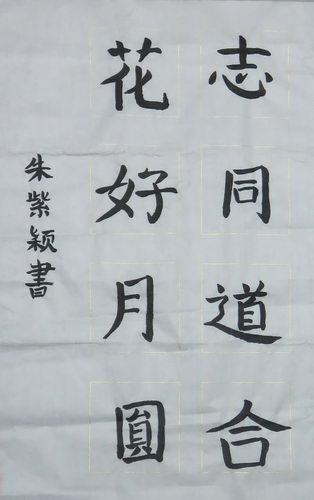 志同道合
花好月圓
朱紫颖書